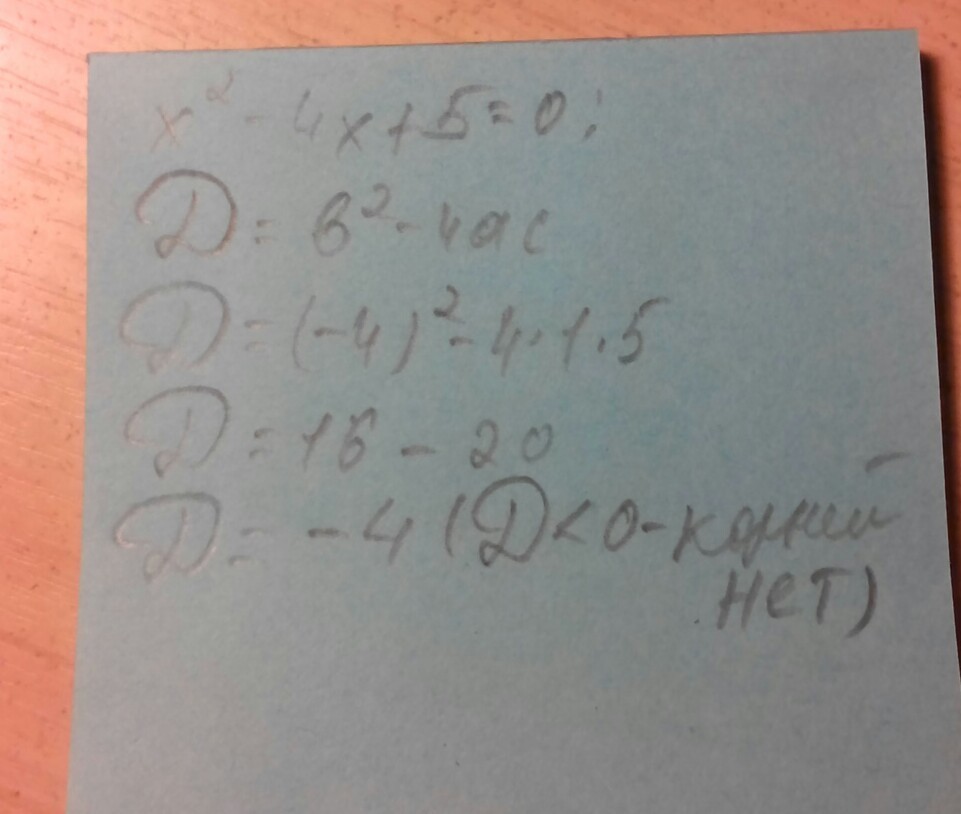 x² - 4x + 5 = 0;
D = b² - 4ac
D = (-4)² - 4·1·5
D = 16 - 20
D = -4 (D < 0 - корней
нет)